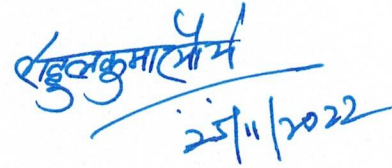 राहुलकुमार मौर्य
25/11/2022